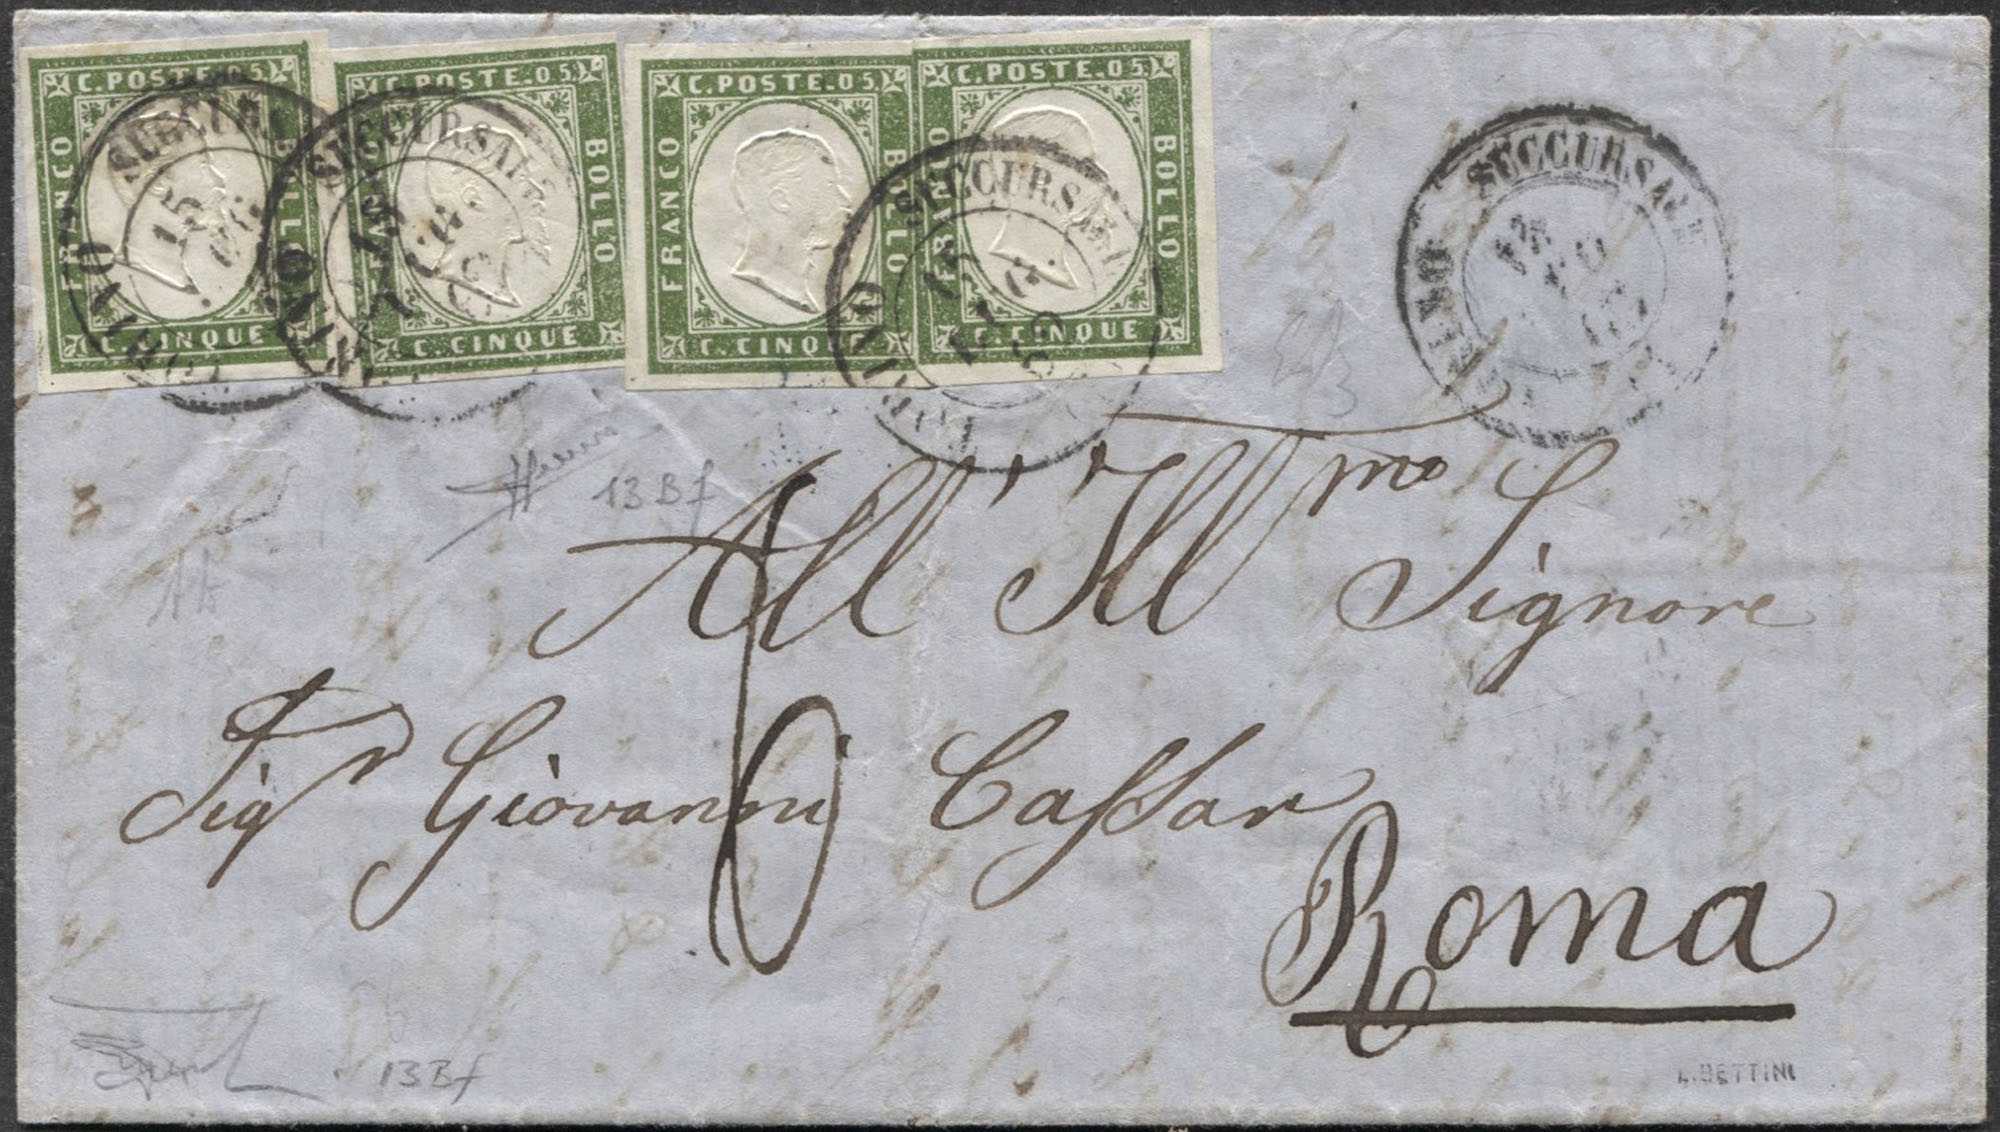 C. POSTE. 05
FRANCO
BOLLO
C. CINQUE
C. POSTE. 05
FRANCO
BOLLO
C. CINQUE
C. POSTE. 05
FRANCO
BOLLO
C. CINQUE
C. POSTE. 05
FRANCO
BOLLO
C. CINQUE
SUCCURSALE
TORINO
15
SUCCURSALE
TORINO
15
SUCCURSALE
TORINO
15
SUCCURSALE
TORINO
13Bf
All' Ill'mo Signore
Sigr Giovanni Cassar
Roma
13Bf
L. BETTINI